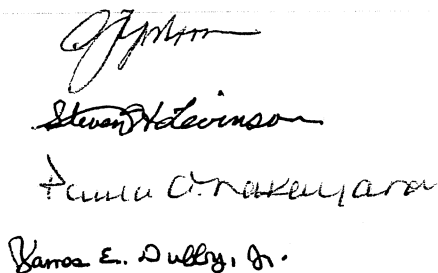 Steven H Levinson
Paula A. Nakayama
James E. Duffy, Jr.